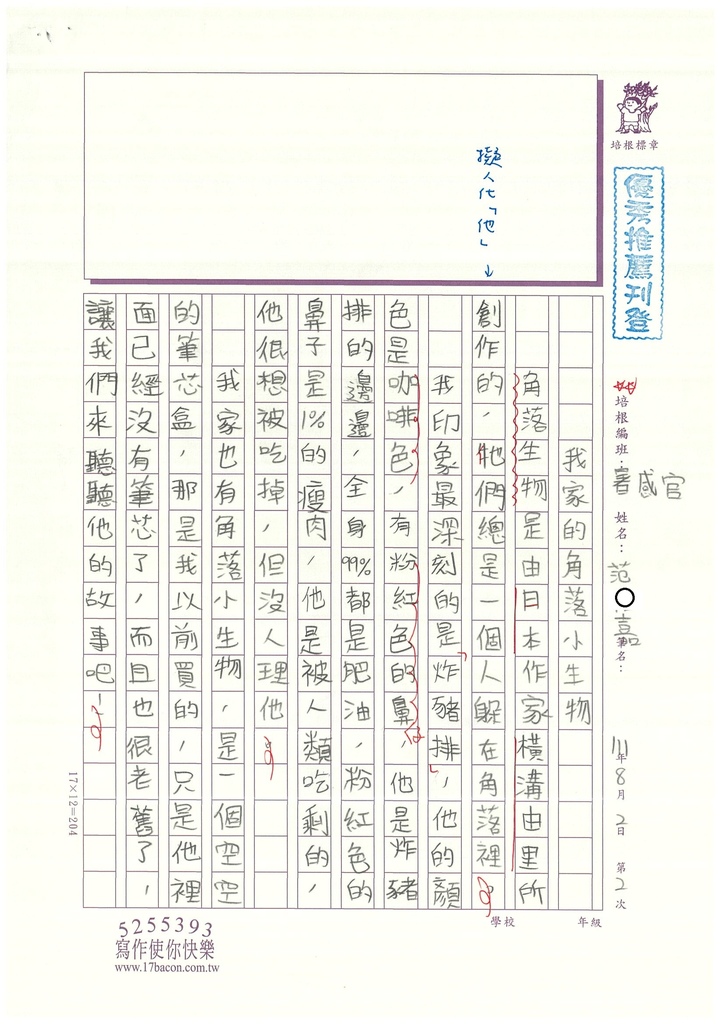 培根標章
優秀推薦刊登
培根編班：
姓名：范○嘉
筆名：
111年8月2日 第2次
學校 年級
擬人化「他」↓
我家的角落小生物
角落生物是由日本作家橫溝由里所
創作的，他們總是一個人躲在角落裡。
我印象最深刻的是「炸豬排」，他的顏
色是咖啡色，有粉紅色的鼻子，他是炸豬
排的邊邊，全身99%都是肥油，粉紅色的
鼻子是1%的瘦肉，他是被人類吃剩的，
他很想被吃掉，但沒人理他。
我家也有角落小生物，是一個空空
的筆芯盒，那是我以前買的，只是他裡
面已經沒有筆芯了，而且也很老舊了，
讓我們來聽聽他的故事吧！
17×12=204
5255393
寫作使你快樂
www.17bacon.com.tw